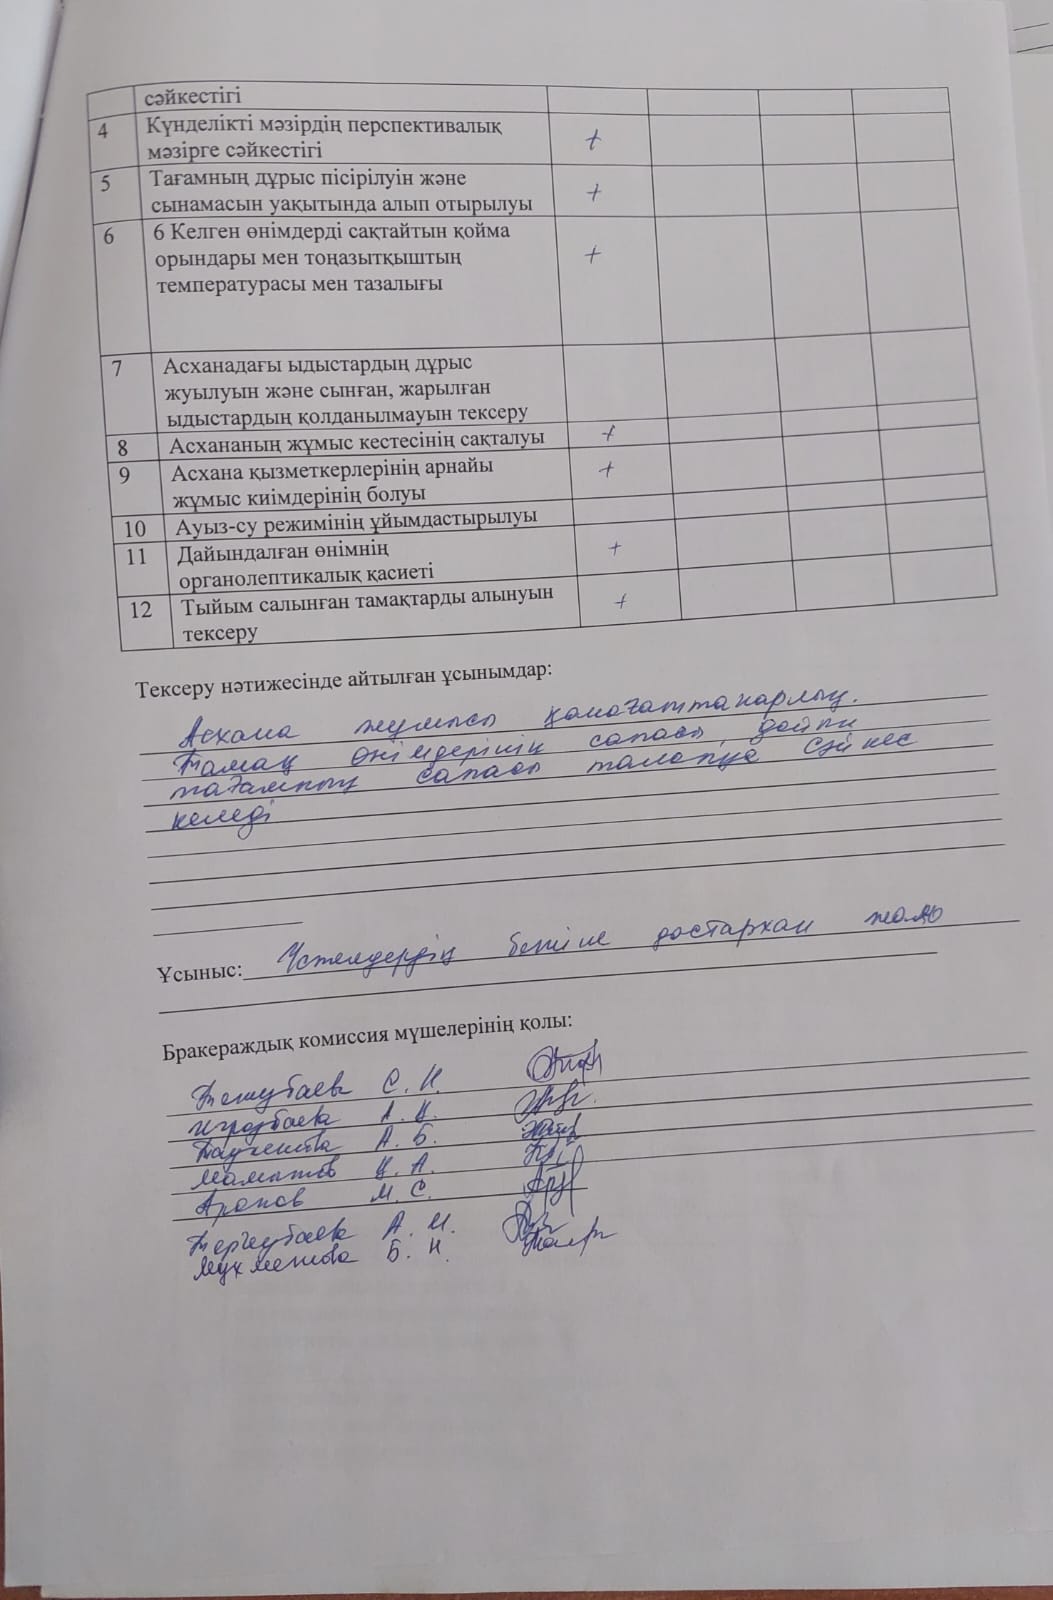 сәйкестігі
4 Күнделікті мәзірдің перспективалық
мәзірге сәйкестігі +
5 Тағамның дұрыс пісірілуін және
сынамасын уақытында алып отырылуы +
6 6 Келген өнімдерді сақтайтын қойма
орындары мен тоңазытқыштың +
температурасы мен тазалығы
7 Асханадағы ыдыстардың дұрыс
жуылуын және сынған, жарылған
ыдыстардың қолданылмауын тексеру
8 Асхананың жұмыс кестесінің сақталуы +
9 Асхана қызметкерлерінің арнайы +
жұмыс киімдерінің болуы
10 Ауыз-су режимінің ұйымдастырылуы
11 Дайындалған өнімнің +
органолептикалық қасиеті
12 Тыйым салынған тамақтарды алынуын +
тексеру
Тексеру нәтижесінде айтылған ұсынымдар:
Асхана жұмысы қанағаттанарлық.
Тамақ өнімдерінің сапасы дайын
тағамның сапасы талапқа сәйкес
келеді
Ұсыныс: Үстелдердің бетіне дастархан жабу
Бракераждық комиссия мүшелерінің қолы:
С. Н.
А.
А. Б.
Маматов А.
Арапов М. С.
А. И.
Б. Н.